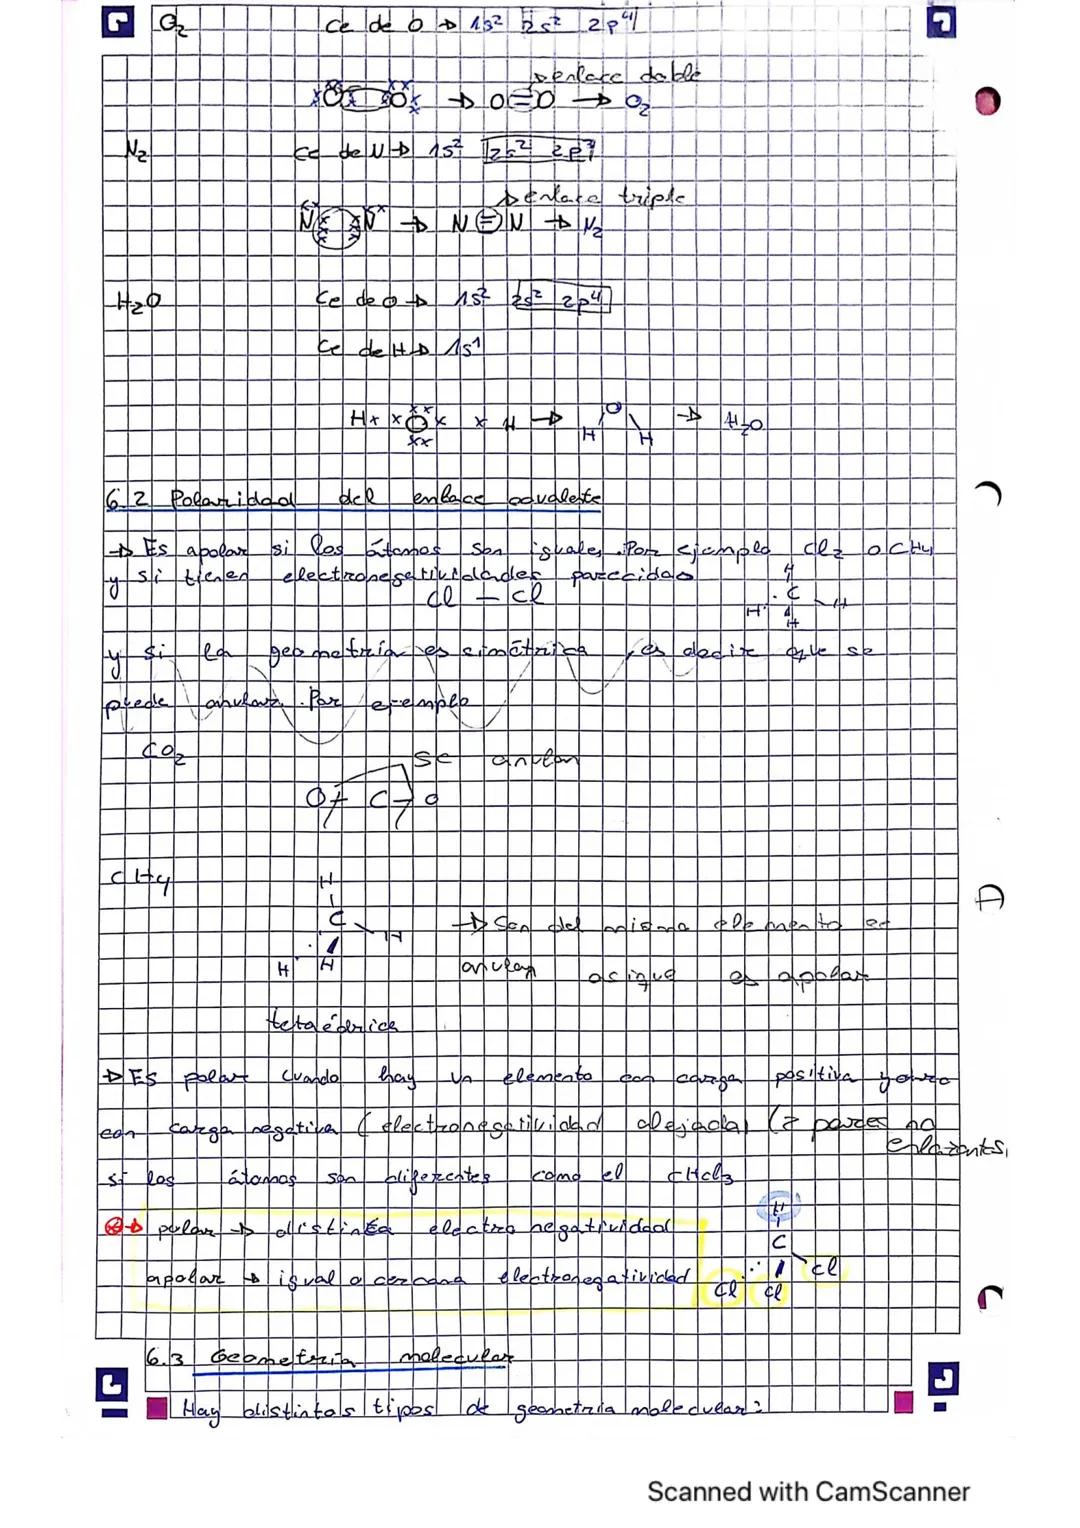 O₂ Ce de O → 1s² 2s² 2p⁴
enlace doble
O O → O=O → O₂
N₂ Ce de N → 1s² 2s² 2p³
enlace triple
N N → N≡N → N₂
H₂O Ce de O → 1s² 2s² 2p⁴
Ce de H → 1s¹
H× ×O× × H → H O H → H₂O
6.2 Polaridad del enlace covalente
→ Es apolar si los átomos son iguales. Por ejemplo Cl₂ o CH₄
y si tienen electronegatividades parecidas
Cl - Cl
H
C
H H
H
y si la geometría es simétrica, es decir que se
puede anular. Por ejemplo
CO₂ se anulan
O C O
CH₄
H
C → Son del mismo elemento se
H
H H anulan asique es apolar
tetaédrica
→ Es polar cuando hay un elemento con carga positiva y otro
con carga negativa (electronegatividad alejada) (2 pares no
enlazantes,
si los átomos son diferentes como el CHCl₃
→ polar → distinta electronegatividad
apolar → igual o cercana electronegatividad
H
C
Cl
Cl Cl
6.3 Geometría molecular
Hay distintos tipos de geometría molecular:
Scanned with CamScanner